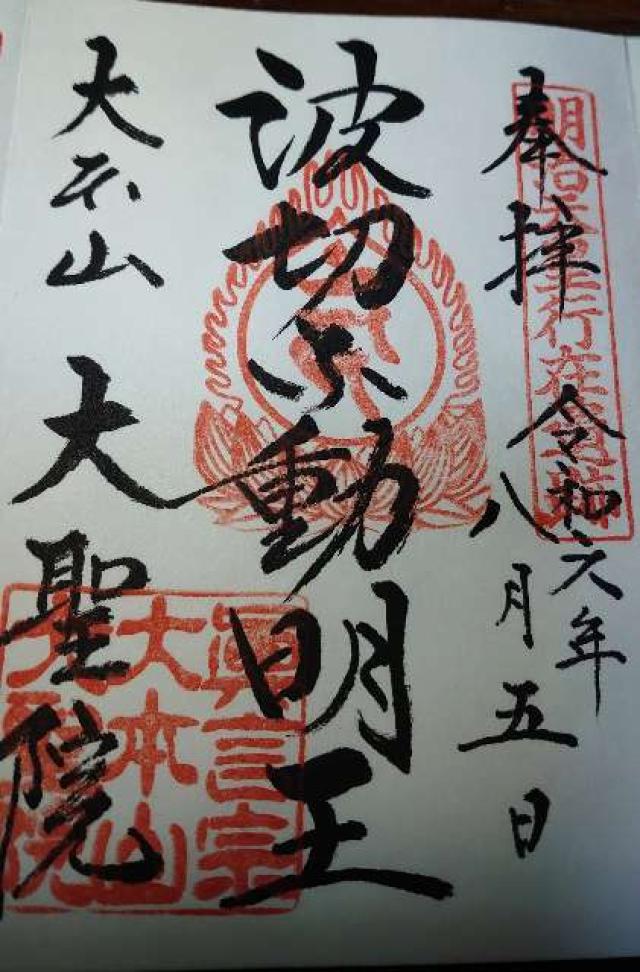 明治天皇行在
奉拝
令和六年
八月五日
波切不動明王
大本山 大聖院
眞言宗
大本山
大聖院